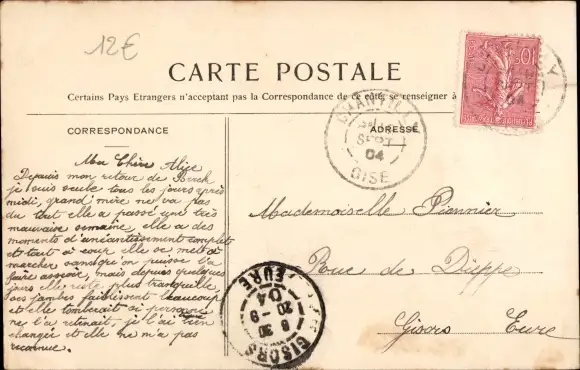 12€
CARTE POSTALE
Certains Pays Etrangers n'acceptant pas la Correspondance de ce côté, se renseigner à
CORRESPONDANCE
ADRESSE
Ma Chère Alice
Depuis mon retour de Berck
je suis seule tous les jours après
midi, grand'mère ne va pas
du tout elle a passé une très
mauvaise semaine, elle a des
moments d'anéantissement complet
et tout à coup elle se met à
marcher sans qu'on puisse la
faire asseoir, mais depuis quelques
jours elle reste plus tranquille,
ses jambes faiblissent beaucoup
et elle tomberait si personne
ne la retenait, je l'ai bien
changée et elle ne m'a pas
reconnue.
Mademoiselle Piannier
Rue de Dieppe
Gisors Eure
CHANTILLY
SEPT
04
OISE
10
04
GISORS
EURE
8 30
20 - 9
04